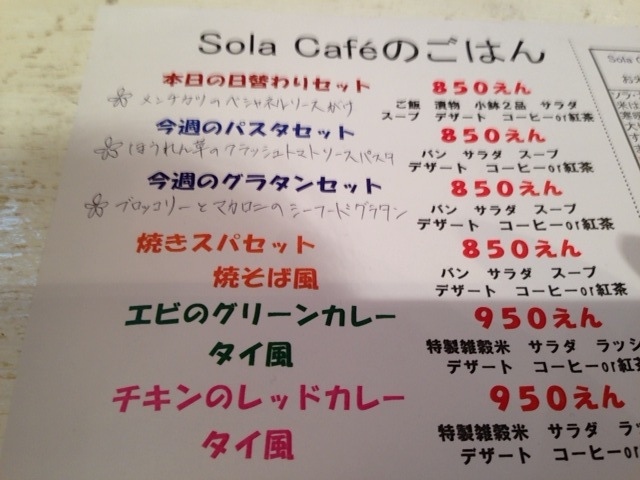 Sola Caféのごはん
本日の日替わりセット 850えん
メンチカツのベシャメルソースがけ
ご飯 漬物 小鉢2品 サラダ
スープ デザート コーヒーor紅茶
今週のパスタセット 850えん
ほうれん草のクラッシュトマトソースパスタ
パン サラダ スープ
デザート コーヒーor紅茶
今週のグラタンセット 850えん
ブロッコリーとマカロニのシーフードグラタン
パン サラダ スープ
デザート コーヒーor紅茶
焼きスパセット 850えん
焼そば風
パン サラダ スープ
デザート コーヒーor紅茶
エビのグリーンカレー 950えん
タイ風
特製雑穀米 サラダ ラッシ
デザート コーヒーor紅
チキンのレッドカレー 950えん
タイ風
特製雑穀米 サラダ
デザート コーヒーor
Sola